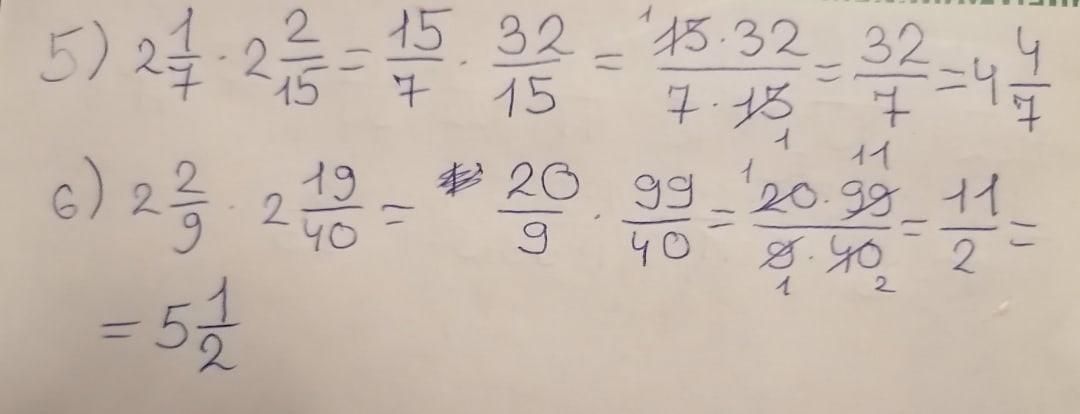 5) 2 1/7 · 2 2/15 = 15/7 · 32/15 = 15·32/7·15 = 32/7 = 4 4/7
6) 2 2/9 · 2 19/40 = 20/9 · 99/40 = 20·99/9·40 = 11/2 =
= 5 1/2